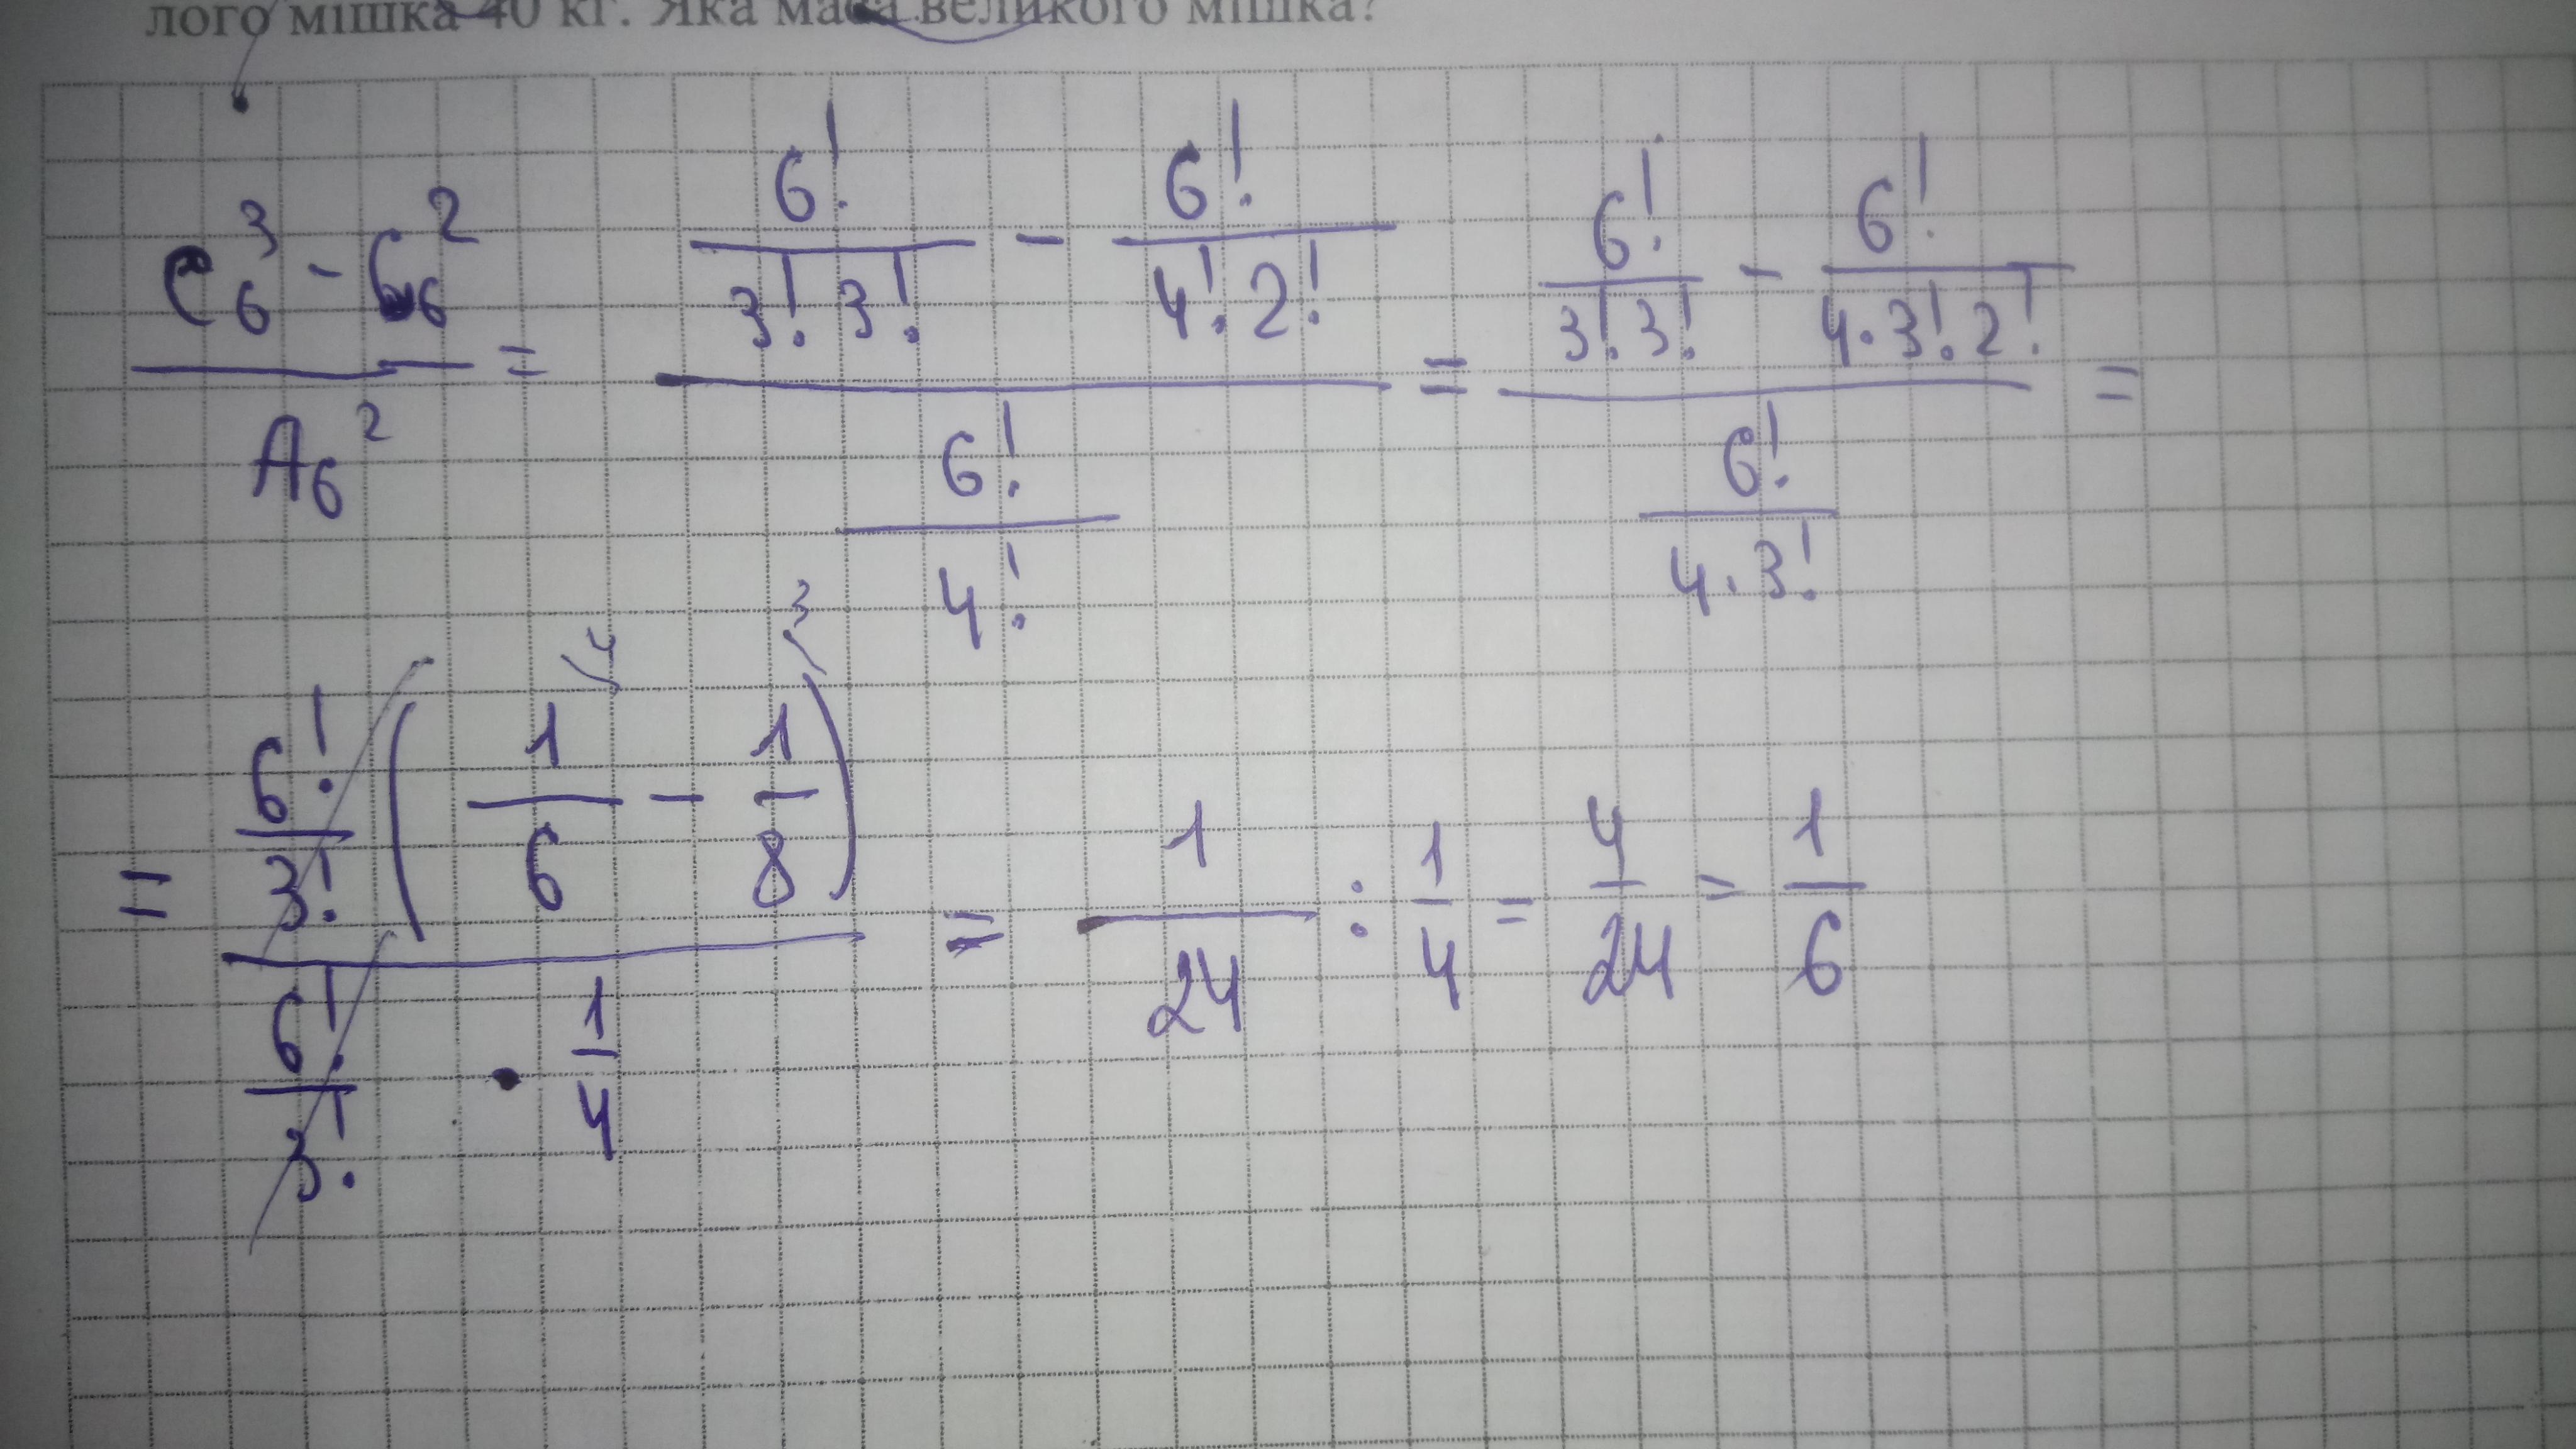 лого мішка 40 кг. Яка маса великого мішка?
(C₆³ - C₆²) / A₆² = (6! / (3! 3!) - 6! / (4! 2!)) / (6! / 4!) = (6! / (3! 3!) - 6! / (4 · 3! 2!)) / (6! / (4 · 3!)) =
= (6! / 3! (1/6 \4 - 1/8 \3)) / (6! / 3! · 1/4) = 1/24 : 1/4 = 4/24 = 1/6